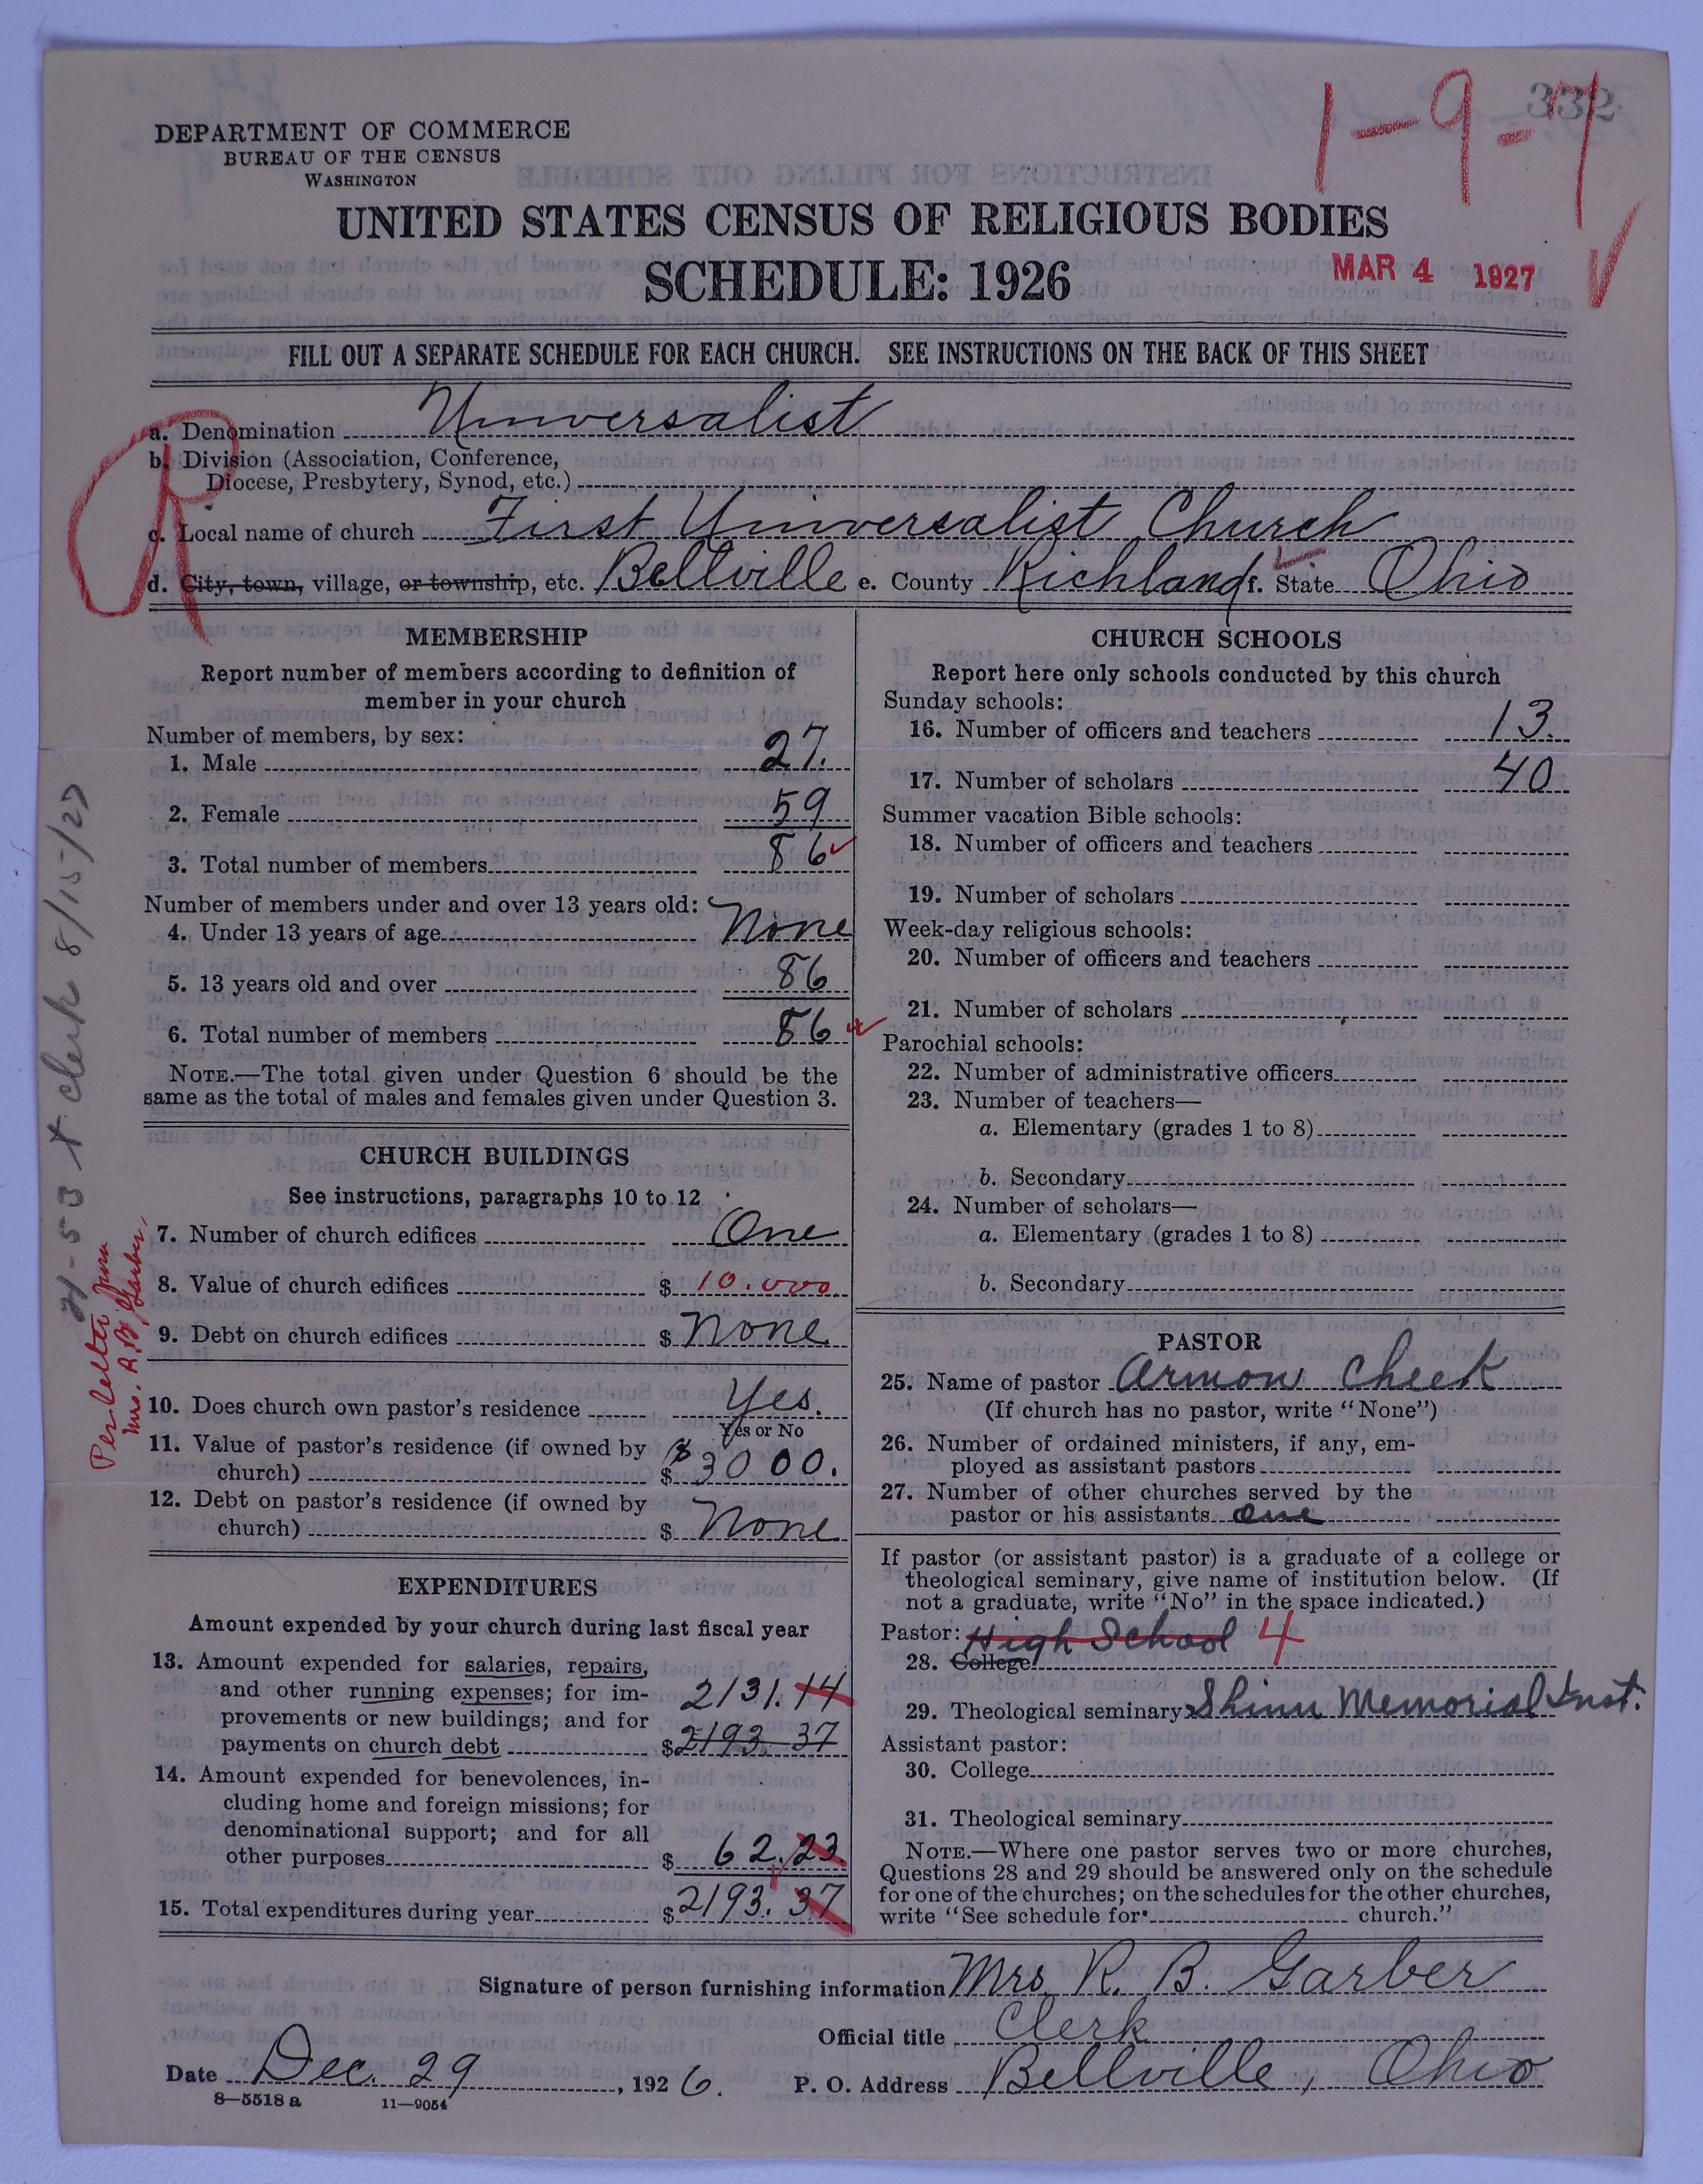 332
1-9-7
DEPARTMENT OF COMMERCE
BUREAU OF THE CENSUS
WASHINGTON
UNITED STATES CENSUS OF RELIGIOUS BODIES
SCHEDULE: 1926
MAR 4 1927
FILL OUT A SEPARATE SCHEDULE FOR EACH CHURCH. SEE INSTRUCTIONS ON THE BACK OF THIS SHEET
a. Denomination Universalist
b. Division (Association, Conference,
Diocese, Presbytery, Synod, etc.)
c. Local name of church First Universalist Church
d. City, town, village, or township, etc. Bellville e. County Richland f. State Ohio
MEMBERSHIP
Report number of members according to definition of
member in your church
Number of members, by sex:
1. Male 27.
2. Female 59
3. Total number of members 86
Number of members under and over 13 years old:
4. Under 13 years of age None
5. 13 years old and over 86
6. Total number of members 86
NOTE.—The total given under Question 6 should be the
same as the total of males and females given under Question 3.
CHURCH BUILDINGS
See instructions, paragraphs 10 to 12
7. Number of church edifices One
8. Value of church edifices $ 10.000
9. Debt on church edifices $ None
10. Does church own pastor's residence Yes.
Yes or No
11. Value of pastor's residence (if owned by
church) $ $3000.
12. Debt on pastor's residence (if owned by
church) $ None
EXPENDITURES
Amount expended by your church during last fiscal year
13. Amount expended for salaries, repairs,
and other running expenses; for im- 2131.14
provements or new buildings; and for
payments on church debt $ 2193.37
14. Amount expended for benevolences, in-
cluding home and foreign missions; for
denominational support; and for all
other purposes $ 62.23
15. Total expenditures during year $ 2193.37
CHURCH SCHOOLS
Report here only schools conducted by this church
Sunday schools:
16. Number of officers and teachers 13.
17. Number of scholars 40
Summer vacation Bible schools:
18. Number of officers and teachers
19. Number of scholars
Week-day religious schools:
20. Number of officers and teachers
21. Number of scholars
Parochial schools:
22. Number of administrative officers
23. Number of teachers—
a. Elementary (grades 1 to 8)
b. Secondary
24. Number of scholars—
a. Elementary (grades 1 to 8)
b. Secondary
PASTOR
25. Name of pastor Armon Cheek
(If church has no pastor, write "None")
26. Number of ordained ministers, if any, em-
ployed as assistant pastors
27. Number of other churches served by the
pastor or his assistants one
If pastor (or assistant pastor) is a graduate of a college or
theological seminary, give name of institution below. (If
not a graduate, write "No" in the space indicated.)
Pastor: High School 4
28. College
29. Theological seminary Shinn Memorial Inst.
Assistant pastor:
30. College
31. Theological seminary
NOTE.—Where one pastor serves two or more churches,
Questions 28 and 29 should be answered only on the schedule
for one of the churches; on the schedules for the other churches,
write "See schedule for church."
Signature of person furnishing information Mrs. R. B. Garber
Official title Clerk
Date Dec. 29, 1926. P. O. Address Bellville, Ohio
8—5518 a 11—9054
Per letter from
Mrs. R. B. Garber,
clerk 8/15/27